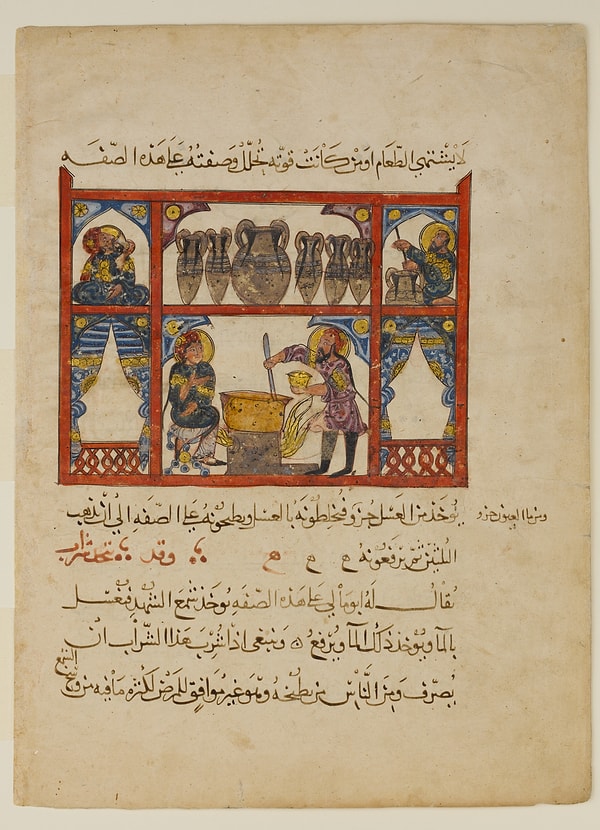 لا يشتهي الطعام او من كانت قوته تحلل وصفته على هذه الصفه
يوخذ من العسل جزو فيخلطونه بالعسل ويطبخونه على الصفه الى ان تذهب
ومن ما العيون جزو
ثم يرفعونه ه ه ه وقد يتخذ شراب
يقال له ابومالي على هذه الصفه يوخذ شمع الشهد فيغسل
بالما ويوخذ ذلك الما ويرفع ه وينبغي اذا شرب هذا الشراب ان
يصرف ومن الناس من يطبخه وهو غير موافق للمرض لكثره ما فيه من وسخ
الشمع